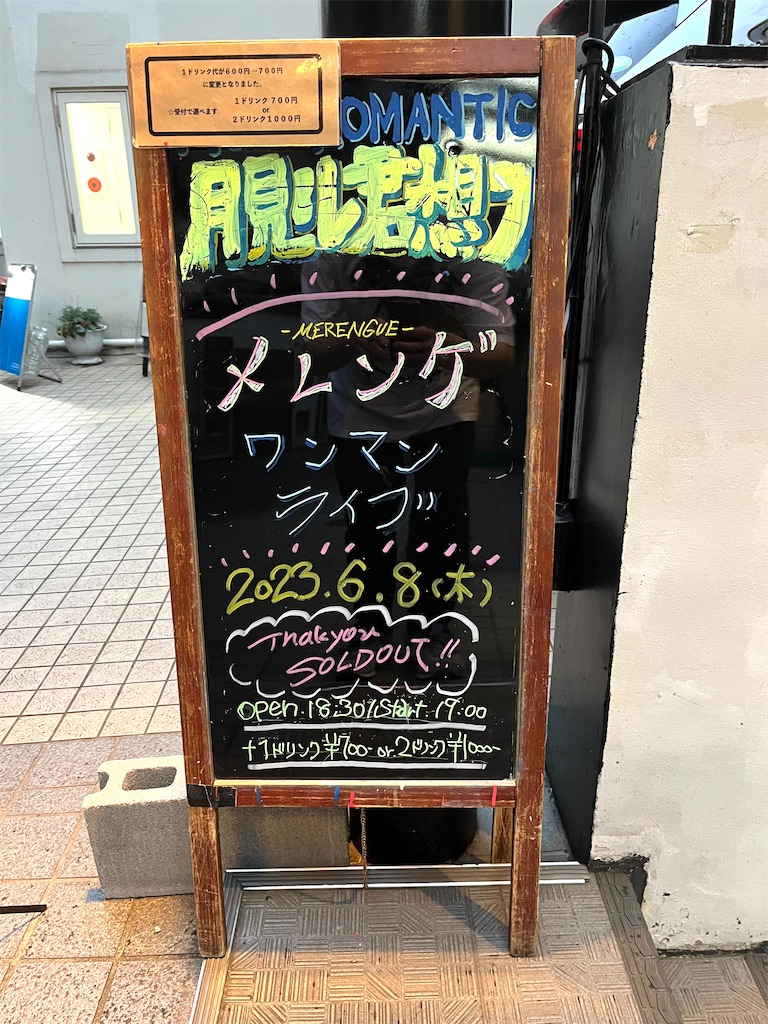 1ドリンク代が600円→700円
に変更となりました。
☆受付で選べます
1ドリンク700円
or
2ドリンク1000円
OMANTIC
月見ル君想フ
-MERENGUE-
メレンゲ
ワンマン
ライブ
2023.6.8(木)
Thakyou
SOLDOUT!!
open 18:30/Start 19:00
+1ドリンク¥700- or 2ドリンク¥1000-